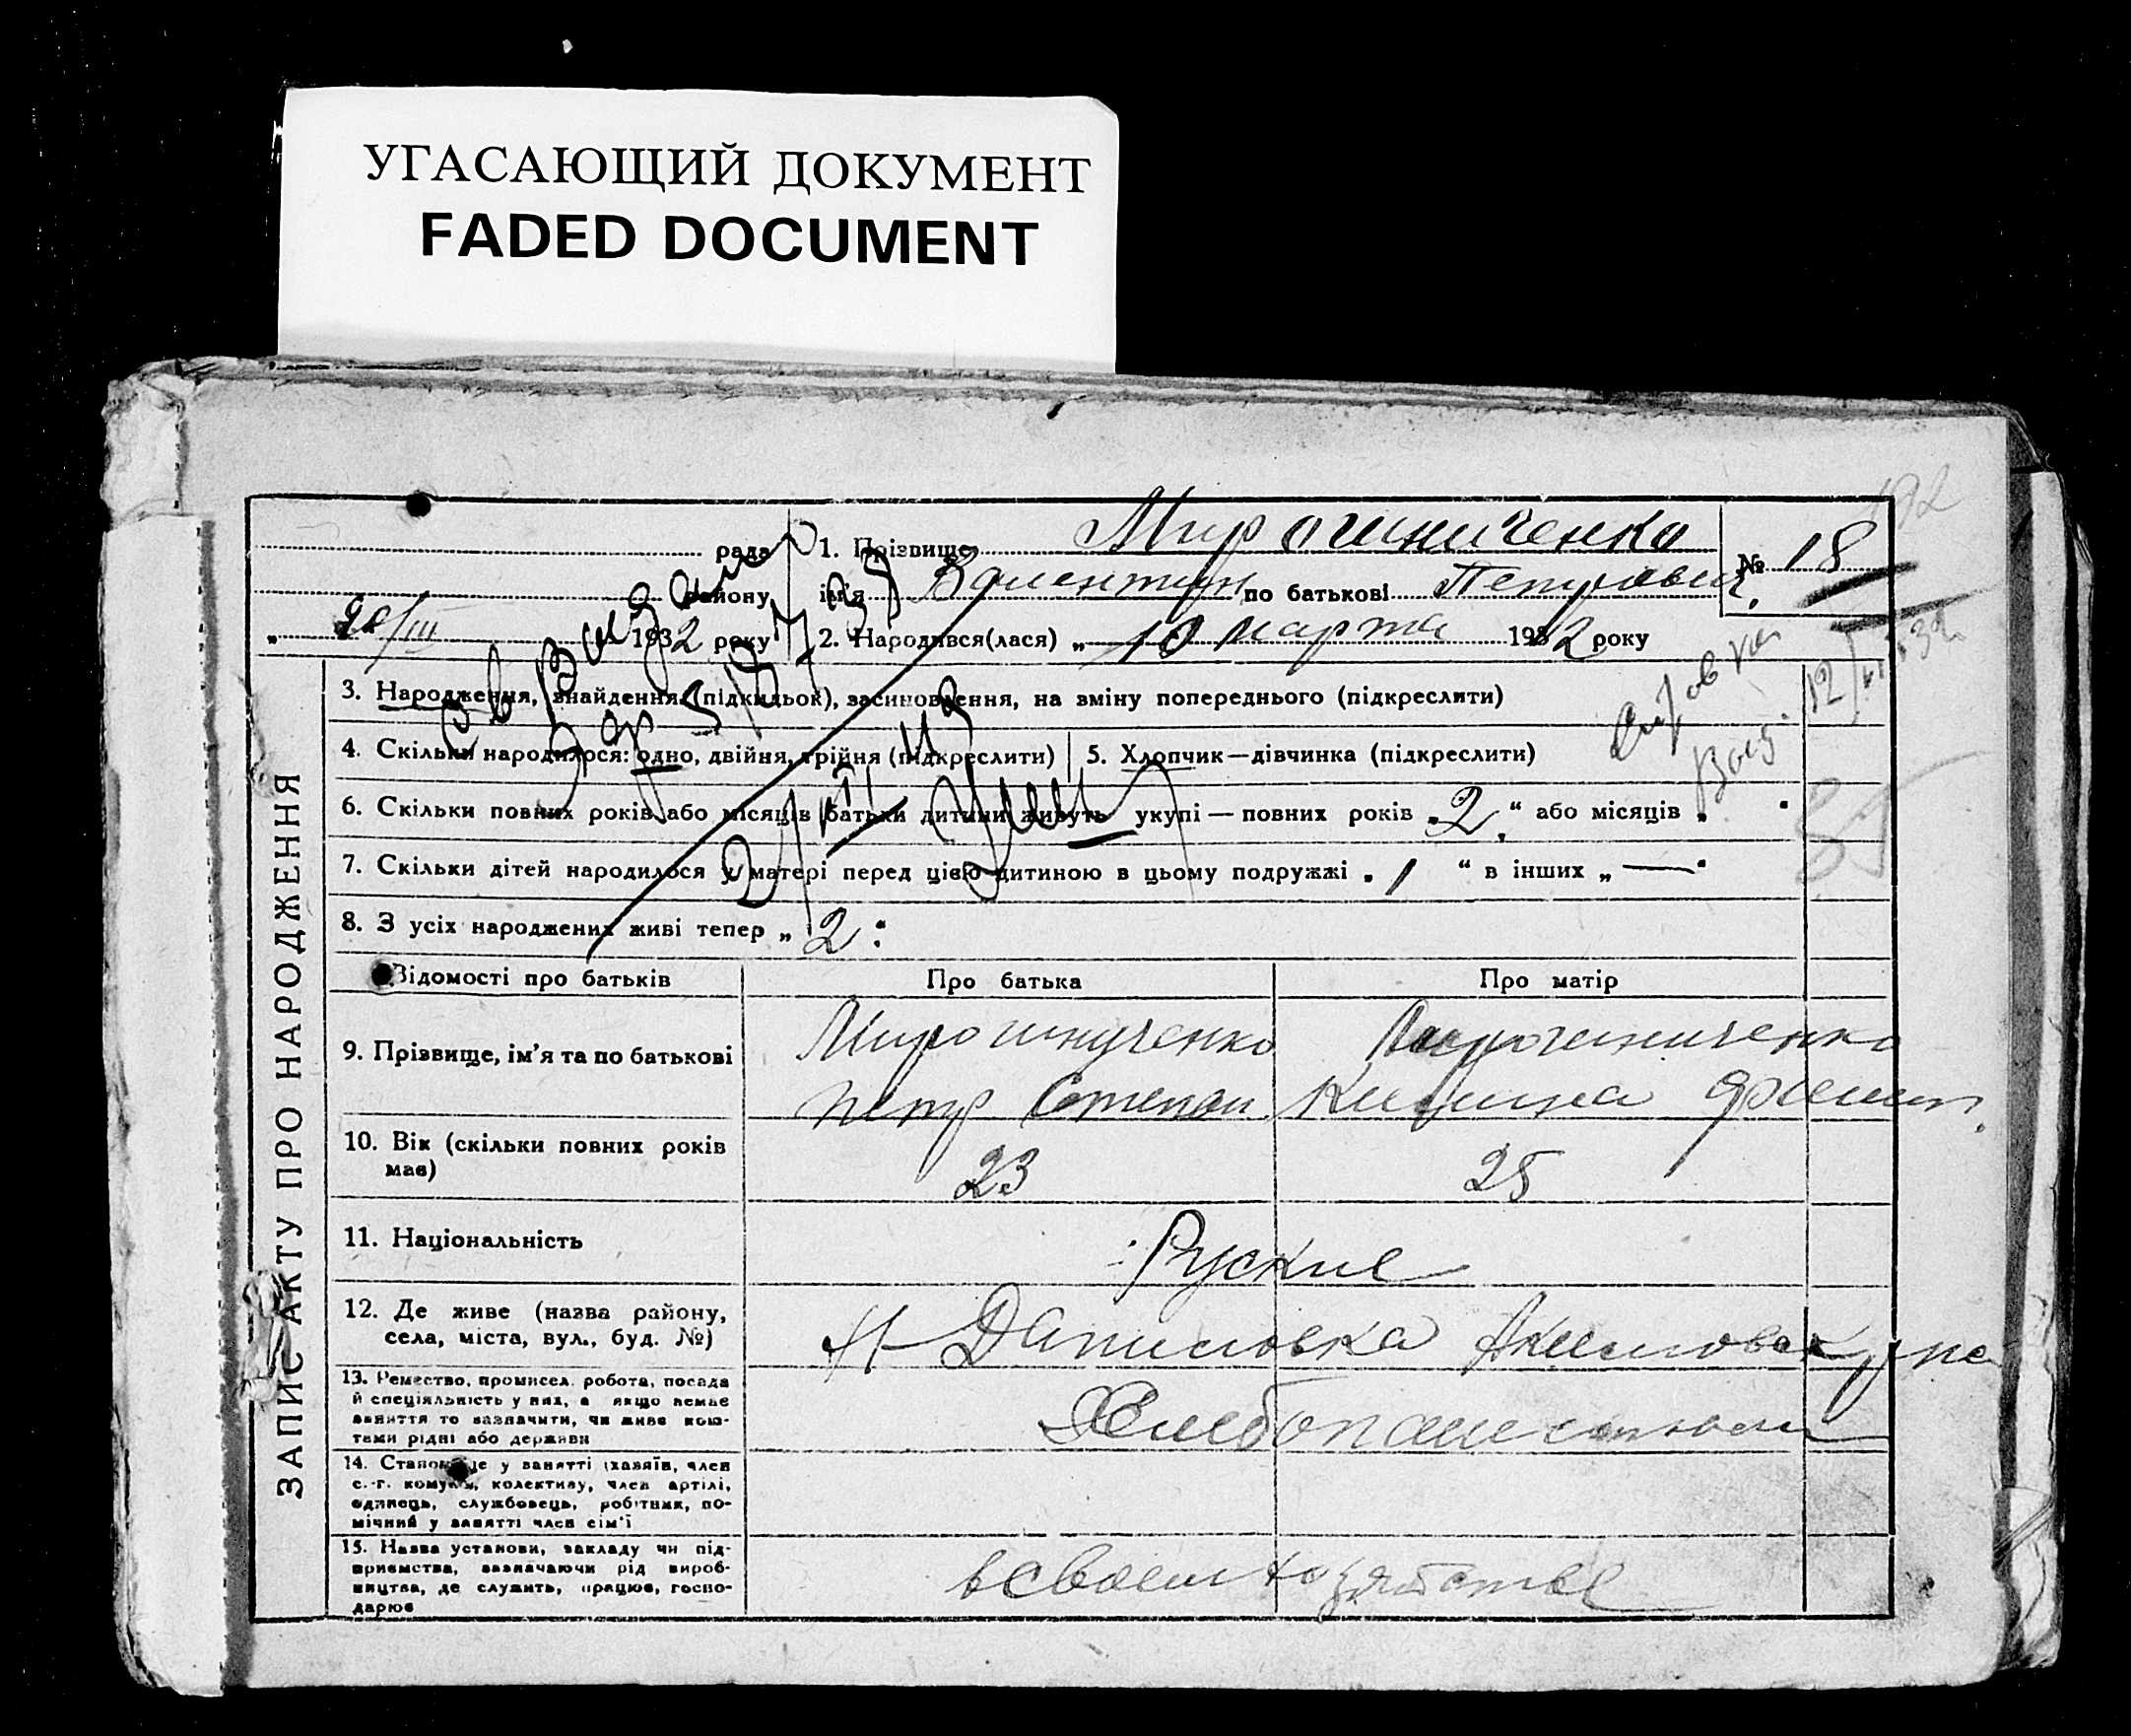 УГАСАЮЩИЙ ДОКУМЕНТ
FADED DOCUMENT
рада
району
„ 20/III 1932 року
1. Прізвище Мирошниченко
ім'я Валентин по батькові Петрович.
2. Народився(лася) „ 10 марта 1932 року
№ 18
ЗАПИС АКТУ ПРО НАРОДЖЕННЯ
3. Народження, знайдення (підкидьок), засиновлення, на зміну попереднього (підкреслити)
4. Скільки народилося: одно, двійня, трійня (підкреслити)
5. Хлопчик—дівчинка (підкреслити)
6. Скільки повних років або місяців батьки дитини живуть укупі — повних років „2“ або місяців „
7. Скільки дітей народилося у матері перед цією дитиною в цьому подружжі „1“ в інших „—“
8. З усіх народжених живі тепер „2
Відомості про батьків
Про батька
Про матір
9. Прізвище, ім'я та по батькові
Мирошнученко
Петр Степан
Мирошниченко
10. Вік (скільки повних років має)
23
25
11. Національність
Руские
12. Де живе (назва району, села, міста, вул., буд. №)
Н-Даниловка Акимовск р на
13. Ремество, промисел, робота, посада й спеціяльність у них, а якщо немає заняття то зазначити, чи живе коштами рідні або держави
Хлебопашеством
14. Становище у занятті (хазяїн, член с.-г. комуни, колективу, член артілі, одинець, службовець, робітник, помічний у занятті член сім'ї
15. Назва установи, закладу чи підприємства, зазначаючи рід виробництва, де служить, працює, господарює
в своем хозяйстве